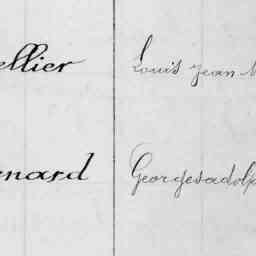 ellier Louis Jean
nard Georges adol